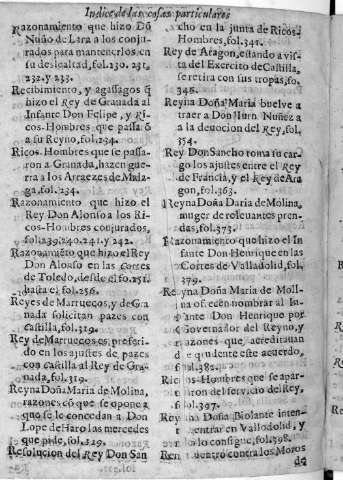 Indice de las cosas particulares
Razonamiento que hizo Dõ
Nuño de Lara a los conju-
rados para mantenerlos en
su deslealtad, fol.230. 231.
232. y 233.
Recibimiento, y agassagos q̃
hizo el Rey de Granada al
Infante Don Felipe, y Ri-
cos-Hombres que passa õ
a su Reyno, fol.234.
Ricos Hombres que se passa-
ron a Granada, hazen guer-
ra a los Arraezes de Mala-
ga, fol.234.
Razonamiento que hizo el
Rey Don Alonso a los Ri-
cos-Hombres conjurados,
fol.239.240.241. y 242.
Razonamiẽto que hizo el Rey
Don Alonso en las Cortes
de Toledo, desde el fo.251.
hasta el fol.256.
Reyes de Marruecos, y de Gra
nada solicitan pazes con
Castilla, fol.319.
Rey de Marruecos es preferi-
do en los ajustes de pazes
con Castilla al Rey de Gra-
nada, fol.319.
Reyna Doña Maria de Molina,
razones cõ que se opone a
que se le concedan a Don
Lope de Haro las mercedes
que pide, fol.329.
Resolucion del Rey Don San
cho en la junta de Ricos-
Hombres, fol.341.
Rey de Aragon, estando a vis-
ta del Exercito de Castilla,
se retira con sus tropas, fo-
346.
Reyna Doña Maria buelve a
traer a Don Iuan Nuñez a
a la devocion del Rey, fol.
354.
Rey Don Sancho toma su car-
go los ajustes entre el Rey
de Francia, y el Rey de Ara
gon, fol.363.
Reyna Doña Maria de Molina,
muger de relevantes pren-
das, fol.373.
Razonamiento que hizo el In
fante Don Henrique en las
Cortes de Valladolid, fol.
379.
Reyna Doña Maria de Moli-
na ofrecen nombrar al In-
fante Don Henrique por
Governador del Reyno, y
razones que acreditavan
de prudente este acuerdo,
fol.382.
Ricos Hombres que se apar-
taron del servicio del Rey,
fol.397.
Reyna Doña Violante inten-
ta entrar en Valladolid, y
no lo consigue, fol.398.
Renquentro contra los Moros
de